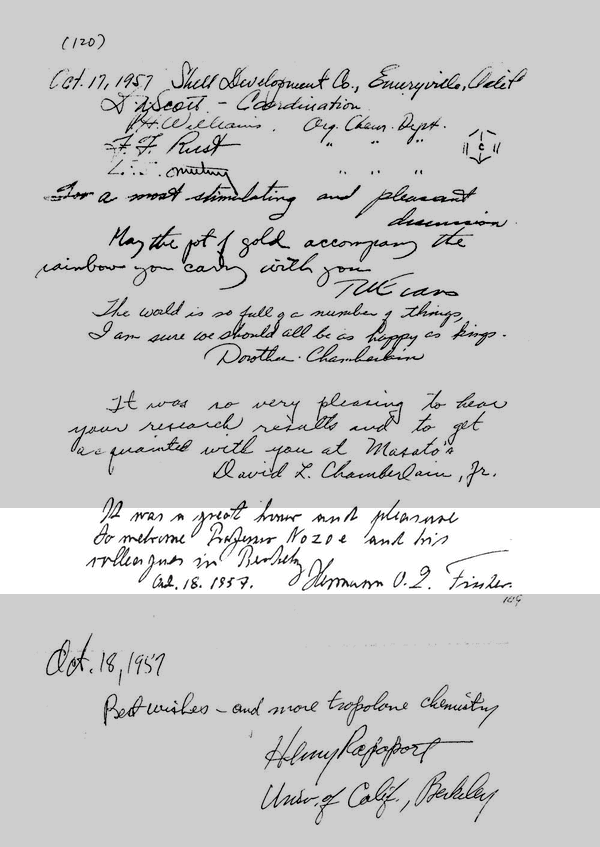 (120)
Oct. 17, 1957 Shell Development Co., Emeryville, Calif.
D. N. Scott - Coordination
P.H. Williams, Org. Chem. Dept.
F. F. Rust " " "
" " "
For a most stimulating and pleasant
discussion.
May the pot of gold accompany the
rainbow you carry with you
T W Evans
The world is so full of a number of things,
I am sure we should all be as happy as kings.
Dorothea Chamberlain
It was so very pleasing to hear
your research results and to get
acquainted with you at Masato's
David L. Chamberlain, Jr.
It was a great honor and pleasure
to welcome Professor Nozoe and his
colleagues in Berkeley
Oct. 18. 1957. Hermann O. L. Fischer.
Oct. 18, 1957
Best wishes - and more tropolone chemistry
Henry Rapoport
Univ. of Calif., Berkeley